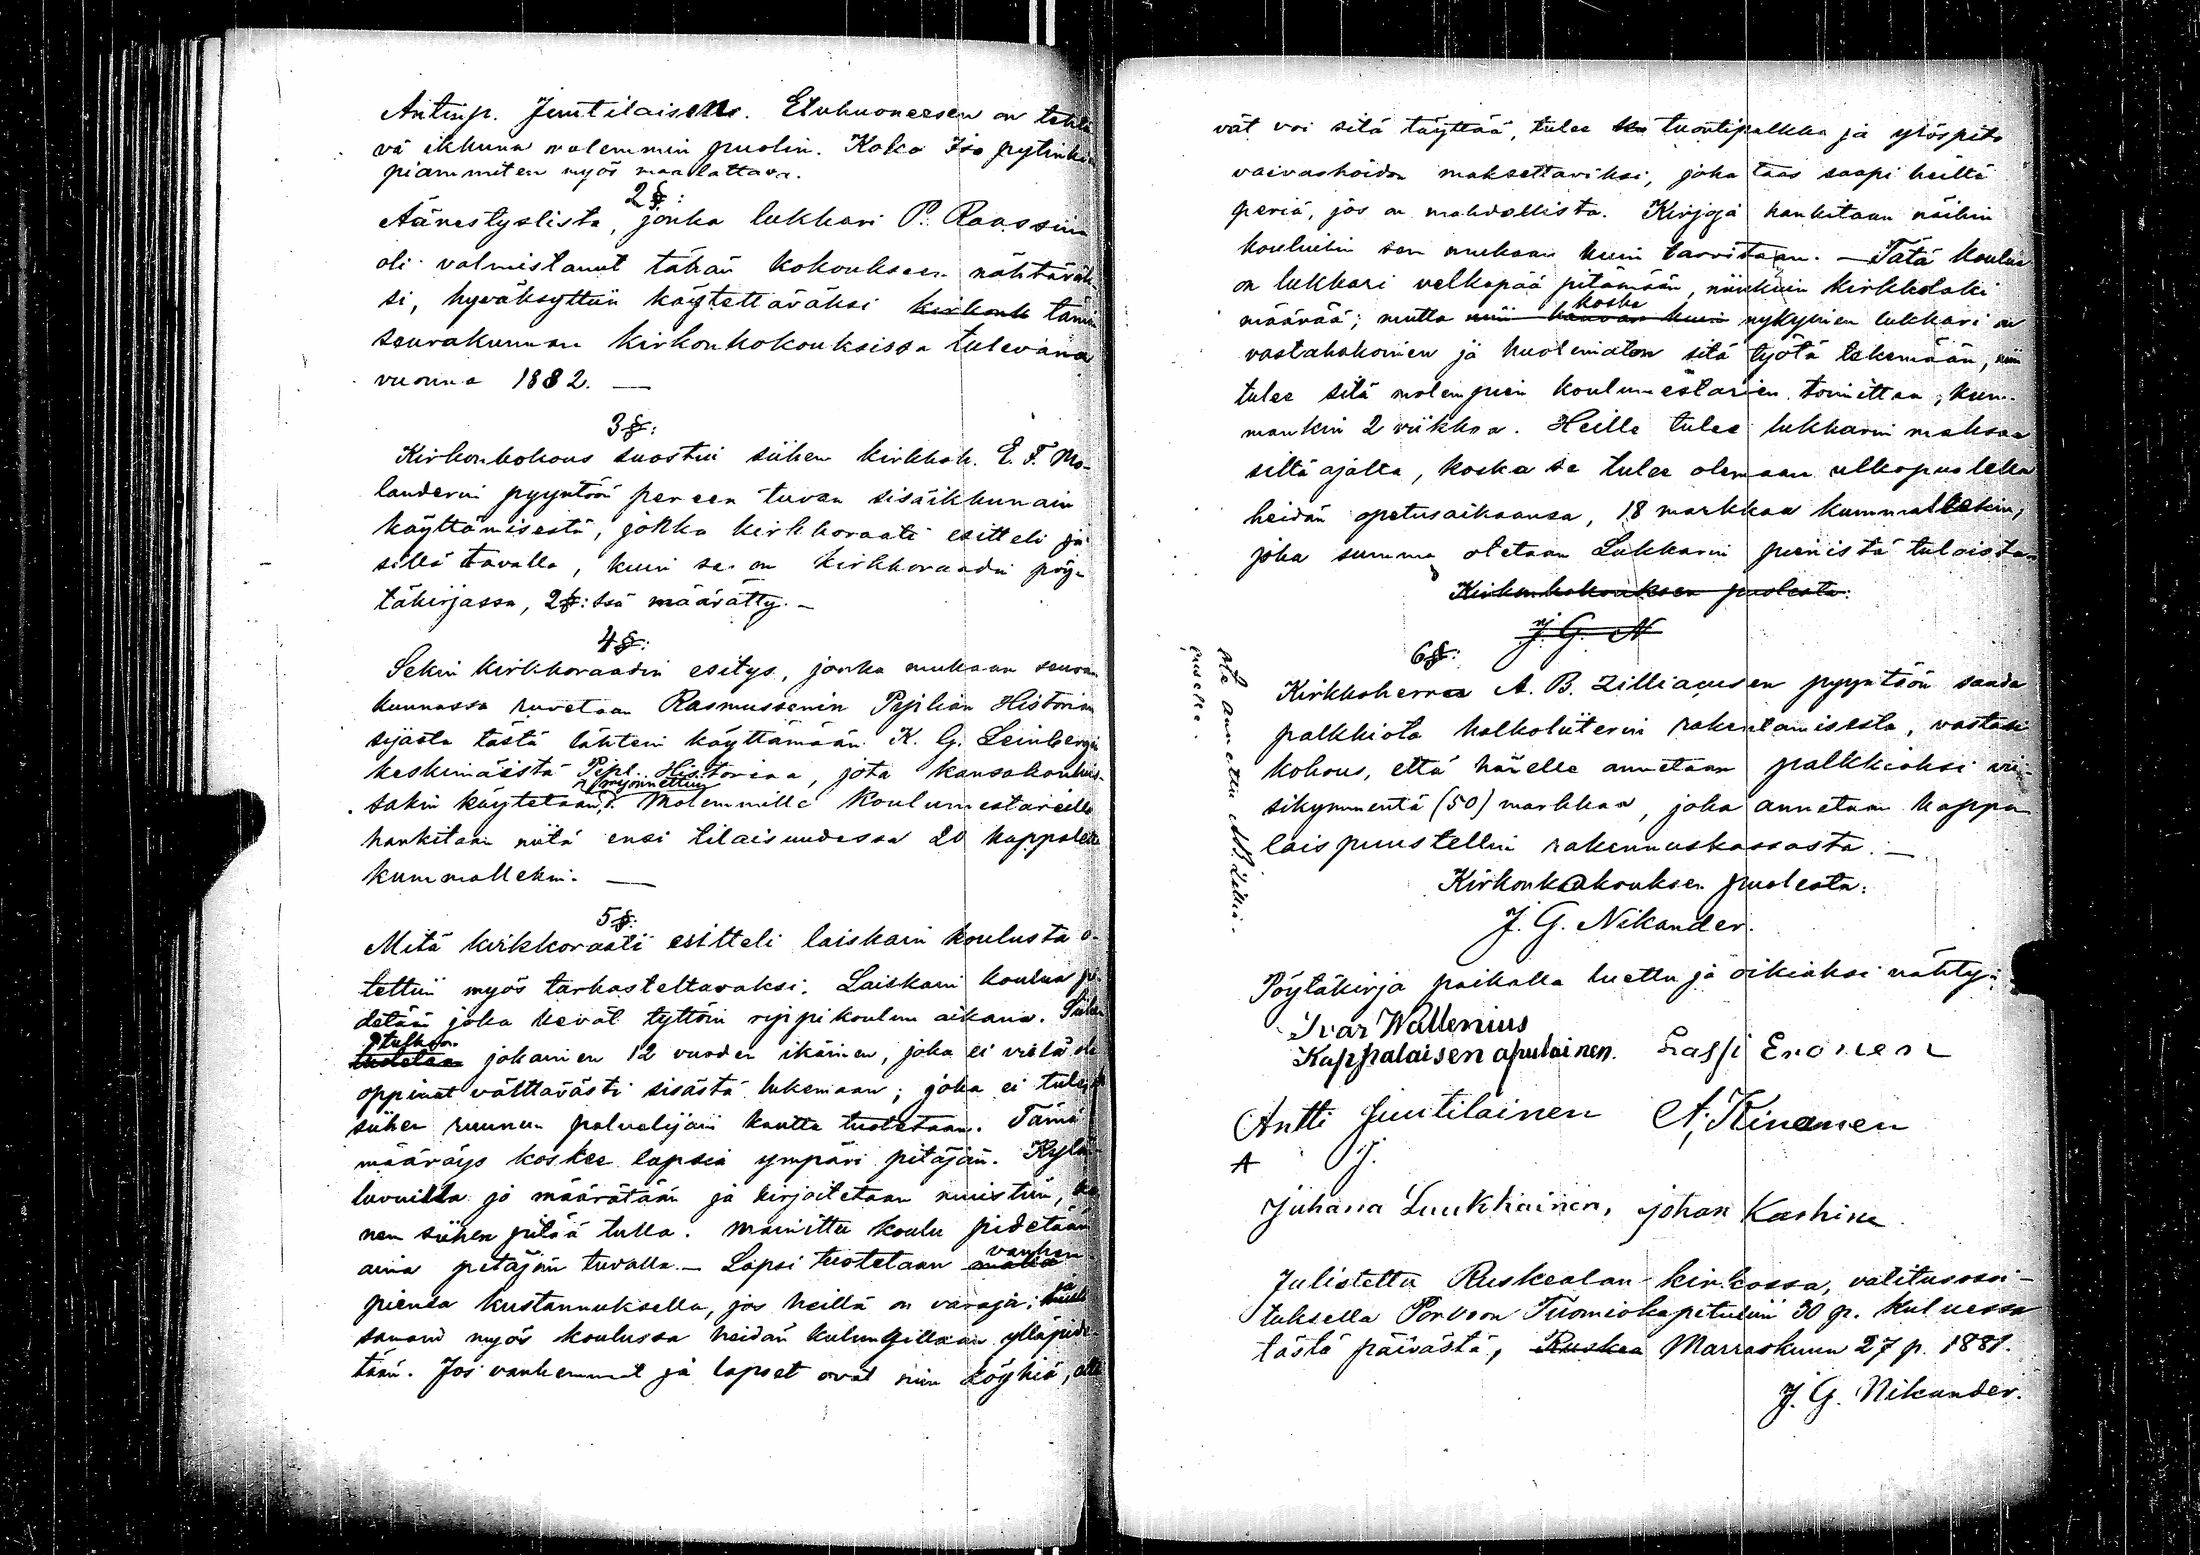 Antinp. Juutilaisens. Etuhuoneesen on tehtä
vä ikkuna molemmin puolin. Koko Iso pytinki
piammiten myös maalattava.
2§:
Äänestyslista, jonka lukkari P. Raassina
oli valmistanut tähän kokoukseen nähtäväk-
si, hyväksyttiin käytettäväksi kirkonk tämän
seurakunnan kirkonkokouksissa tulevana
vuonna 1882. —
3§:
Kirkonkokous suostui siihen kirkkoh. E. F. Mo-
landerin pyyntöön pereen tuvan sisäikkunain
käyttämisestä, jokka kirkkoraati esitteli ja
sillä tavalla, kuin se on kirkkoraadin pöy-
täkirjassa, 2§:ssä määrätty. —
4§:
Sekin kirkkoraadin esitys, jonka mukaan seura
kunnassa ruvetaan Rasmussenin Piplian Historian
sijasta tästä lähtein käyttämään K. G. Leinbergin
keskimäistä Pipl. Historiaa, jota kansakouluis-
myönnettiin
sakin käytetään. Molemmille koulumestareille
hankitaan niitä ensi tilaisuudessa 20 kappaletta
kummallekin. —
5§:
Mitä kirkkoraati esitteli laiskain koulusta o-
tettiin myös tarkasteltavaksi. Laiskain koulua pi-
detään joka kevät tyttöin rippikoulun aikana. Siihen
tulkoon
tuotetaan jokainen 12 vuoden ikäinen, joka ei vielä ole
oppinut välttävästi sisästä lukemaan; joka ei tule,
siihen ruunun palvelijain kautta tuotetaan. Tämä
määräys koskee lapsia ympäri pitäjän. Kylä-
luvuilla jo määrätään ja kirjoitetaan muistiin, ke
nen siihen pitää tulla. Mainittu koulu pidetään
aina pitäjän tuvalla. — Lapsi tuotetaan vanhem-
piensa kustannuksella, jos heillä on varoja;
samaud myös koulussa heidän kulungillaan ylläpide-
tään. Jos vanhemmat ja lapset ovat niin köyhiä, ettei
vät voi sitä täyttää, tulee tuontipalkka ja ylöspito
vaivashoidon maksettaviksi, joka taas saapi heiltä
periä, jos on mahdollista. Kirjoja hankitaan näihin
kouluihin sen mukaan kuin tarvitaan. — Tätä koulua
on lukkari velkapää pitämään, niinkuin kirkkolaki
koska
määrää; mutta niin kauvan kuin nykyinen lukkari on
vastahakoinen ja huolimaton sitä työtä tekemään, niin
tulee sitä molempien koulumestarien toimittaa, kum-
mankin 2 viikkoa. Heille tulee lukkarin maksaa
siltä ajalta, koska se tulee olemaan ulkopuolella
heidän opetusaikaansa, 18 markkaa kummallekin,
joka summa otetaan Lukkarin pienistä tuloistan
Kirkonkokouksen puolesta:
J. G. N
6§:
Kirkkoherra A. B. Zilliacusen pyyntöön saada
palkkiota halkoliiterin rakentamisesta, vastasi
kokous, että hänelle annetaan palkkioksi vii-
sikymmentä (50) markkaa, joka annetaan kappa-
laispuustellin rakennuskassasta. —
Kirkonkokouksen puolesta:
J. G. Nikander.
Pöytäkirja paikalla luettu ja oikiaksi nähty:
Ivar Wallenius
Kappalaisen apulainen. Lassi Eronen
Antti Juutilainen A. Kinanen
A J.
Juhana Luukkainen, Johan Kashinen
Julistettu Ruskealan kirkossa, valitusosoi-
tuksella Porvoon Tuomiokapituliin 30 p. kuluessa
tästä päivästä, Ruskea Marraskuun 27 p. 1881.
J. G. Nikander.